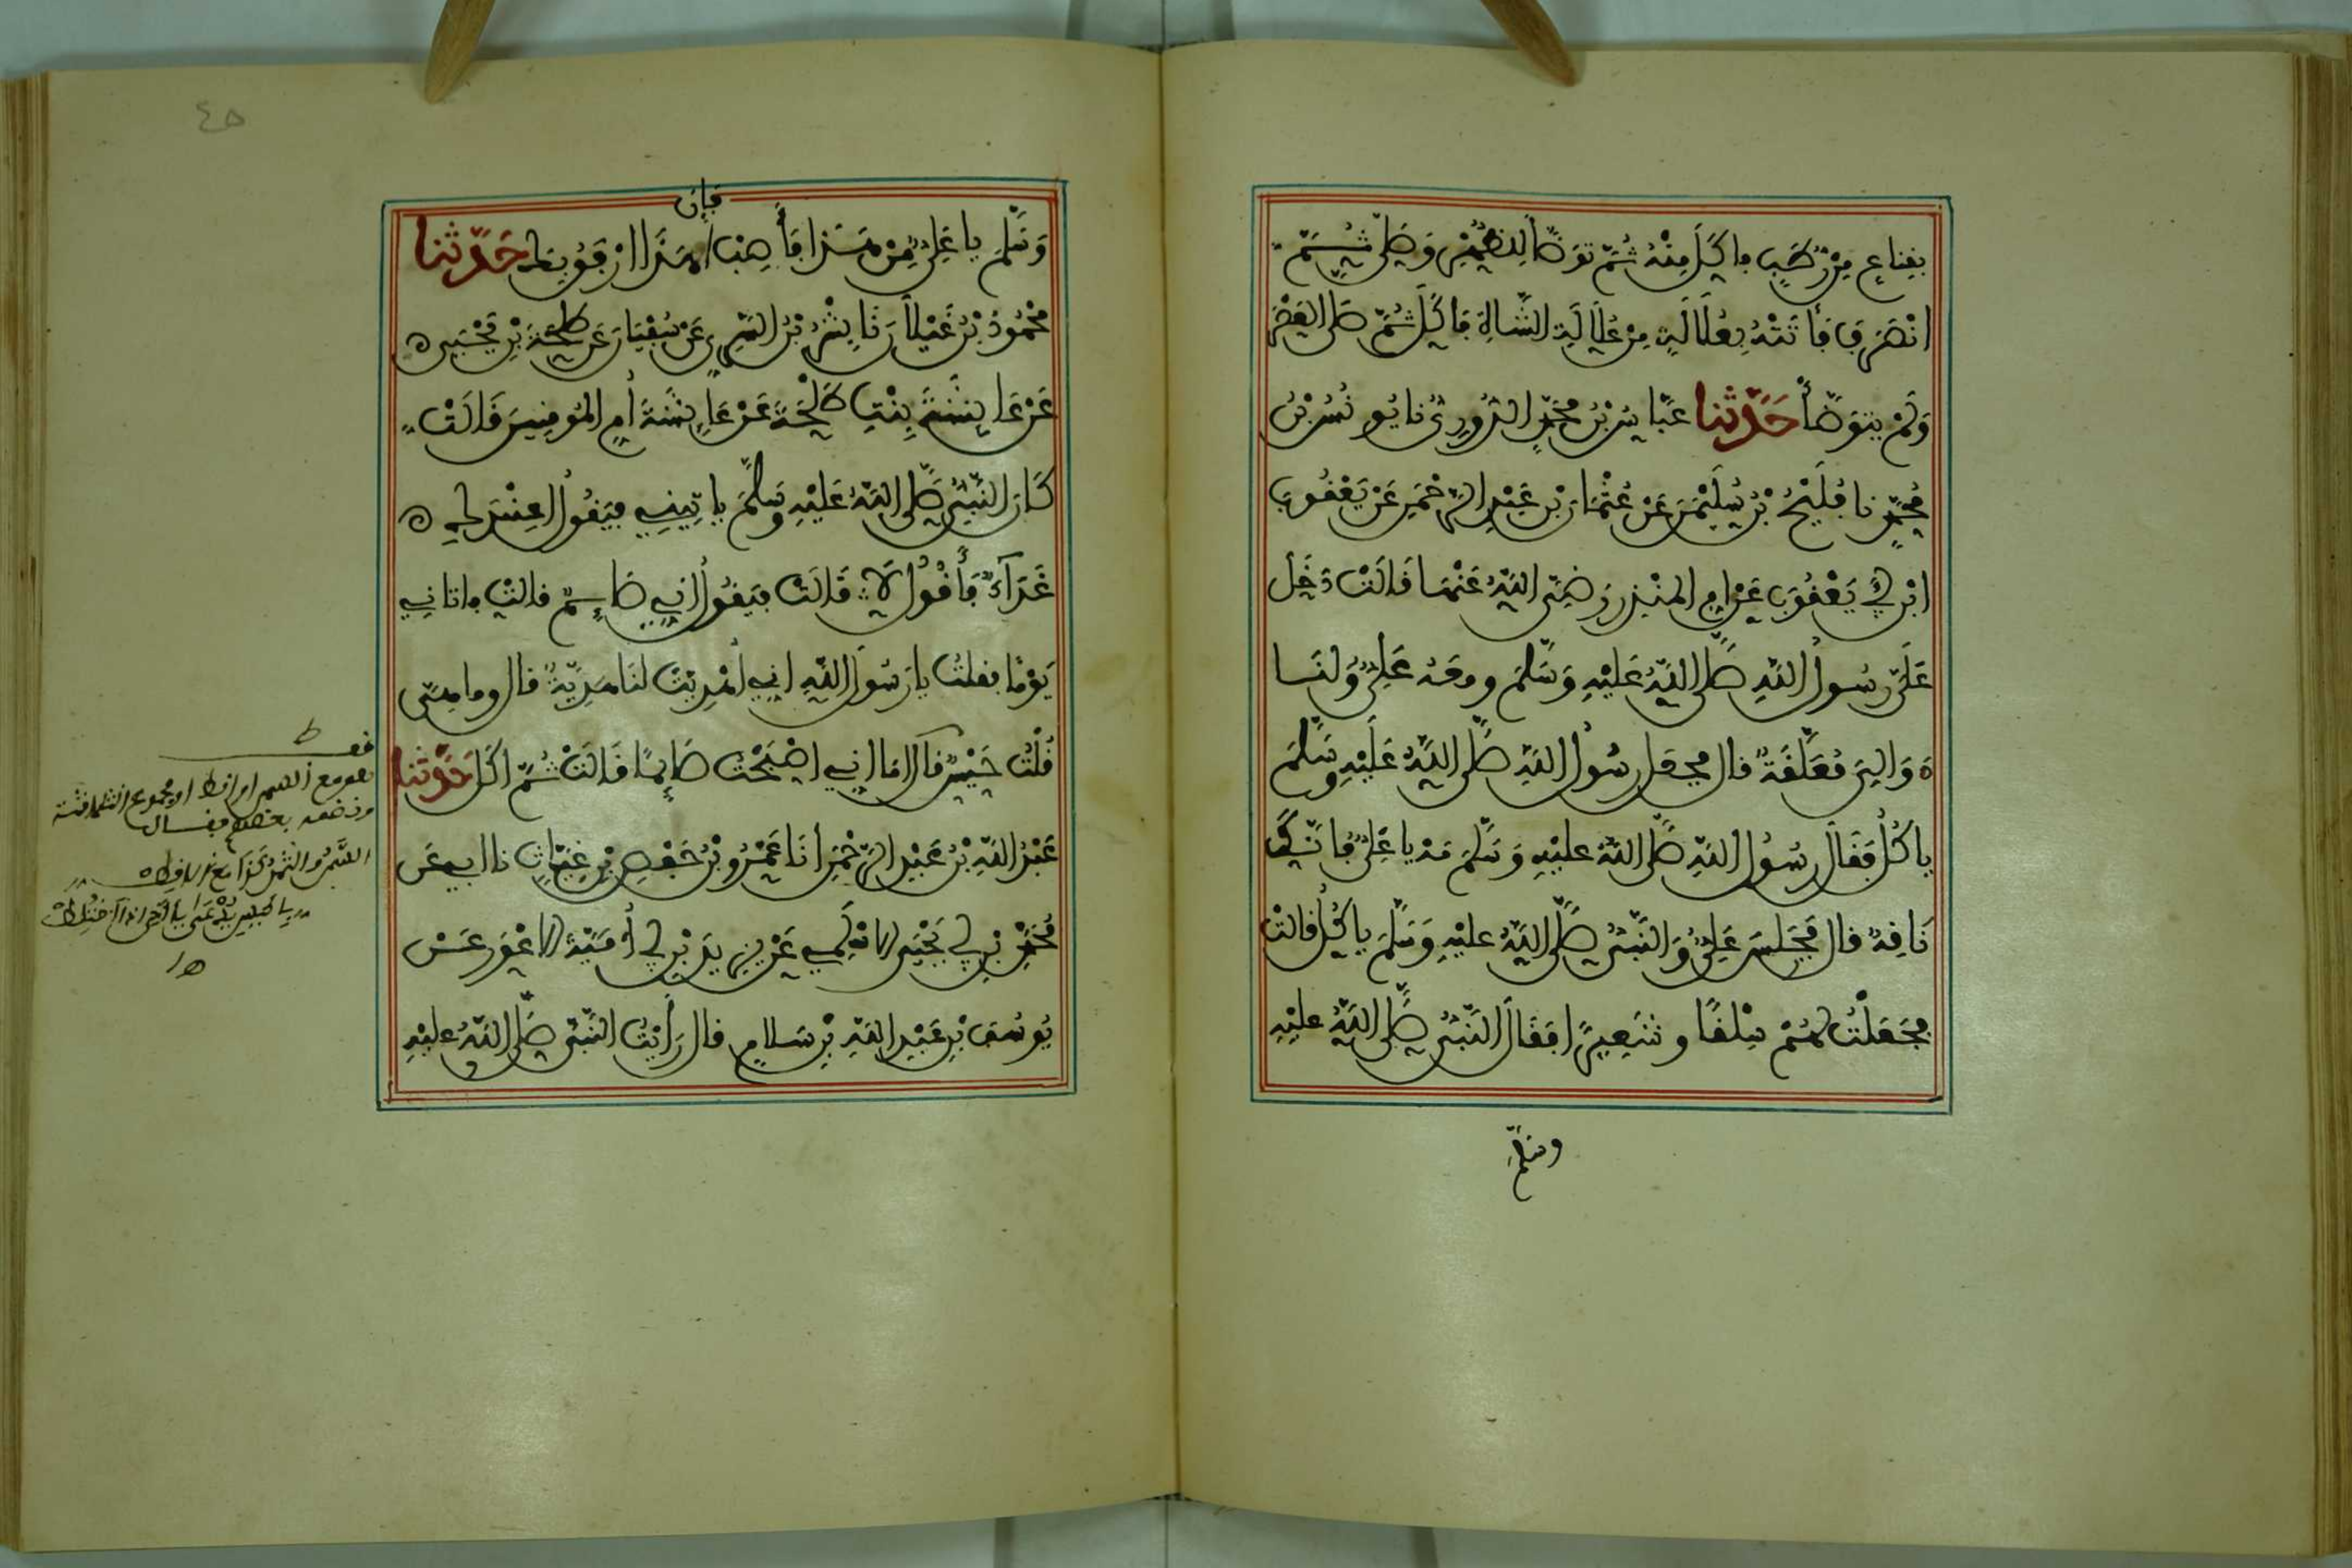 بقناع من رطب فاكل منه ثم توضأ للظهر وصلى ثم
انصرف فأتته بعلالة من علالة الشاة فأكل ثم صلى العصر
ولم يتوضأ حدثنا عباس بن محمد الدوري نا يونس بن
محمد نا فليح بن سليمن عن عثمان بن عبد الرحمن عن يعقوب
ابن أبي يعقوب عن ام المنذر رضي الله عنها قالت دخل
على رسول الله صلى الله عليه وسلم ومعه علي ولنا
دوالي معلقة قال فجعل رسول الله صلى الله عليه وسلم
ياكل فقال رسول الله صلى الله عليه وسلم مه يا علي فانك
ناقه قال فجلس علي والنبي صلى الله عليه وسلم ياكل قالت
فجعلت لهم سلقا وشعيرا فقال النبي صلى الله عليه
وسلم
٤٥
فإن
وسلم يا علي من هذا فأصب هذا اوفق لك حدثنا
محمود بن غيلان نا بشر بن السري عن سفيان عن طلحة بن يحيى
عن عايشة بنت طلحة عن عايشة أم المومنين قالت
كان النبي صلى الله عليه وسلم ياتيني فيقول اعندك
غداء فأقول لا قالت فيقول اني صايم قالت فاتاني
يوما فقلت يا رسول الله انه أهديت لنا هدية قال وما هي
قلت حيس قال اما اني اصبحت صايما قالت ثم اكل حدثنا
عبد الله بن عبد الرحمن أنا عمرو بن حفص بن غياث نا ابي عن
محمد بن ابي يحيى الاسلمي عن يزيد بن ابي أمية الاعور عن
يوسف بن عبد الله بن سلام قال رأيت النبي صلى الله عليه
هو مع السمن او اقط او مجموع الثلاثة
وقد نظمه بعضهم فقال
السمن والتمر كذاك الاقط
اه